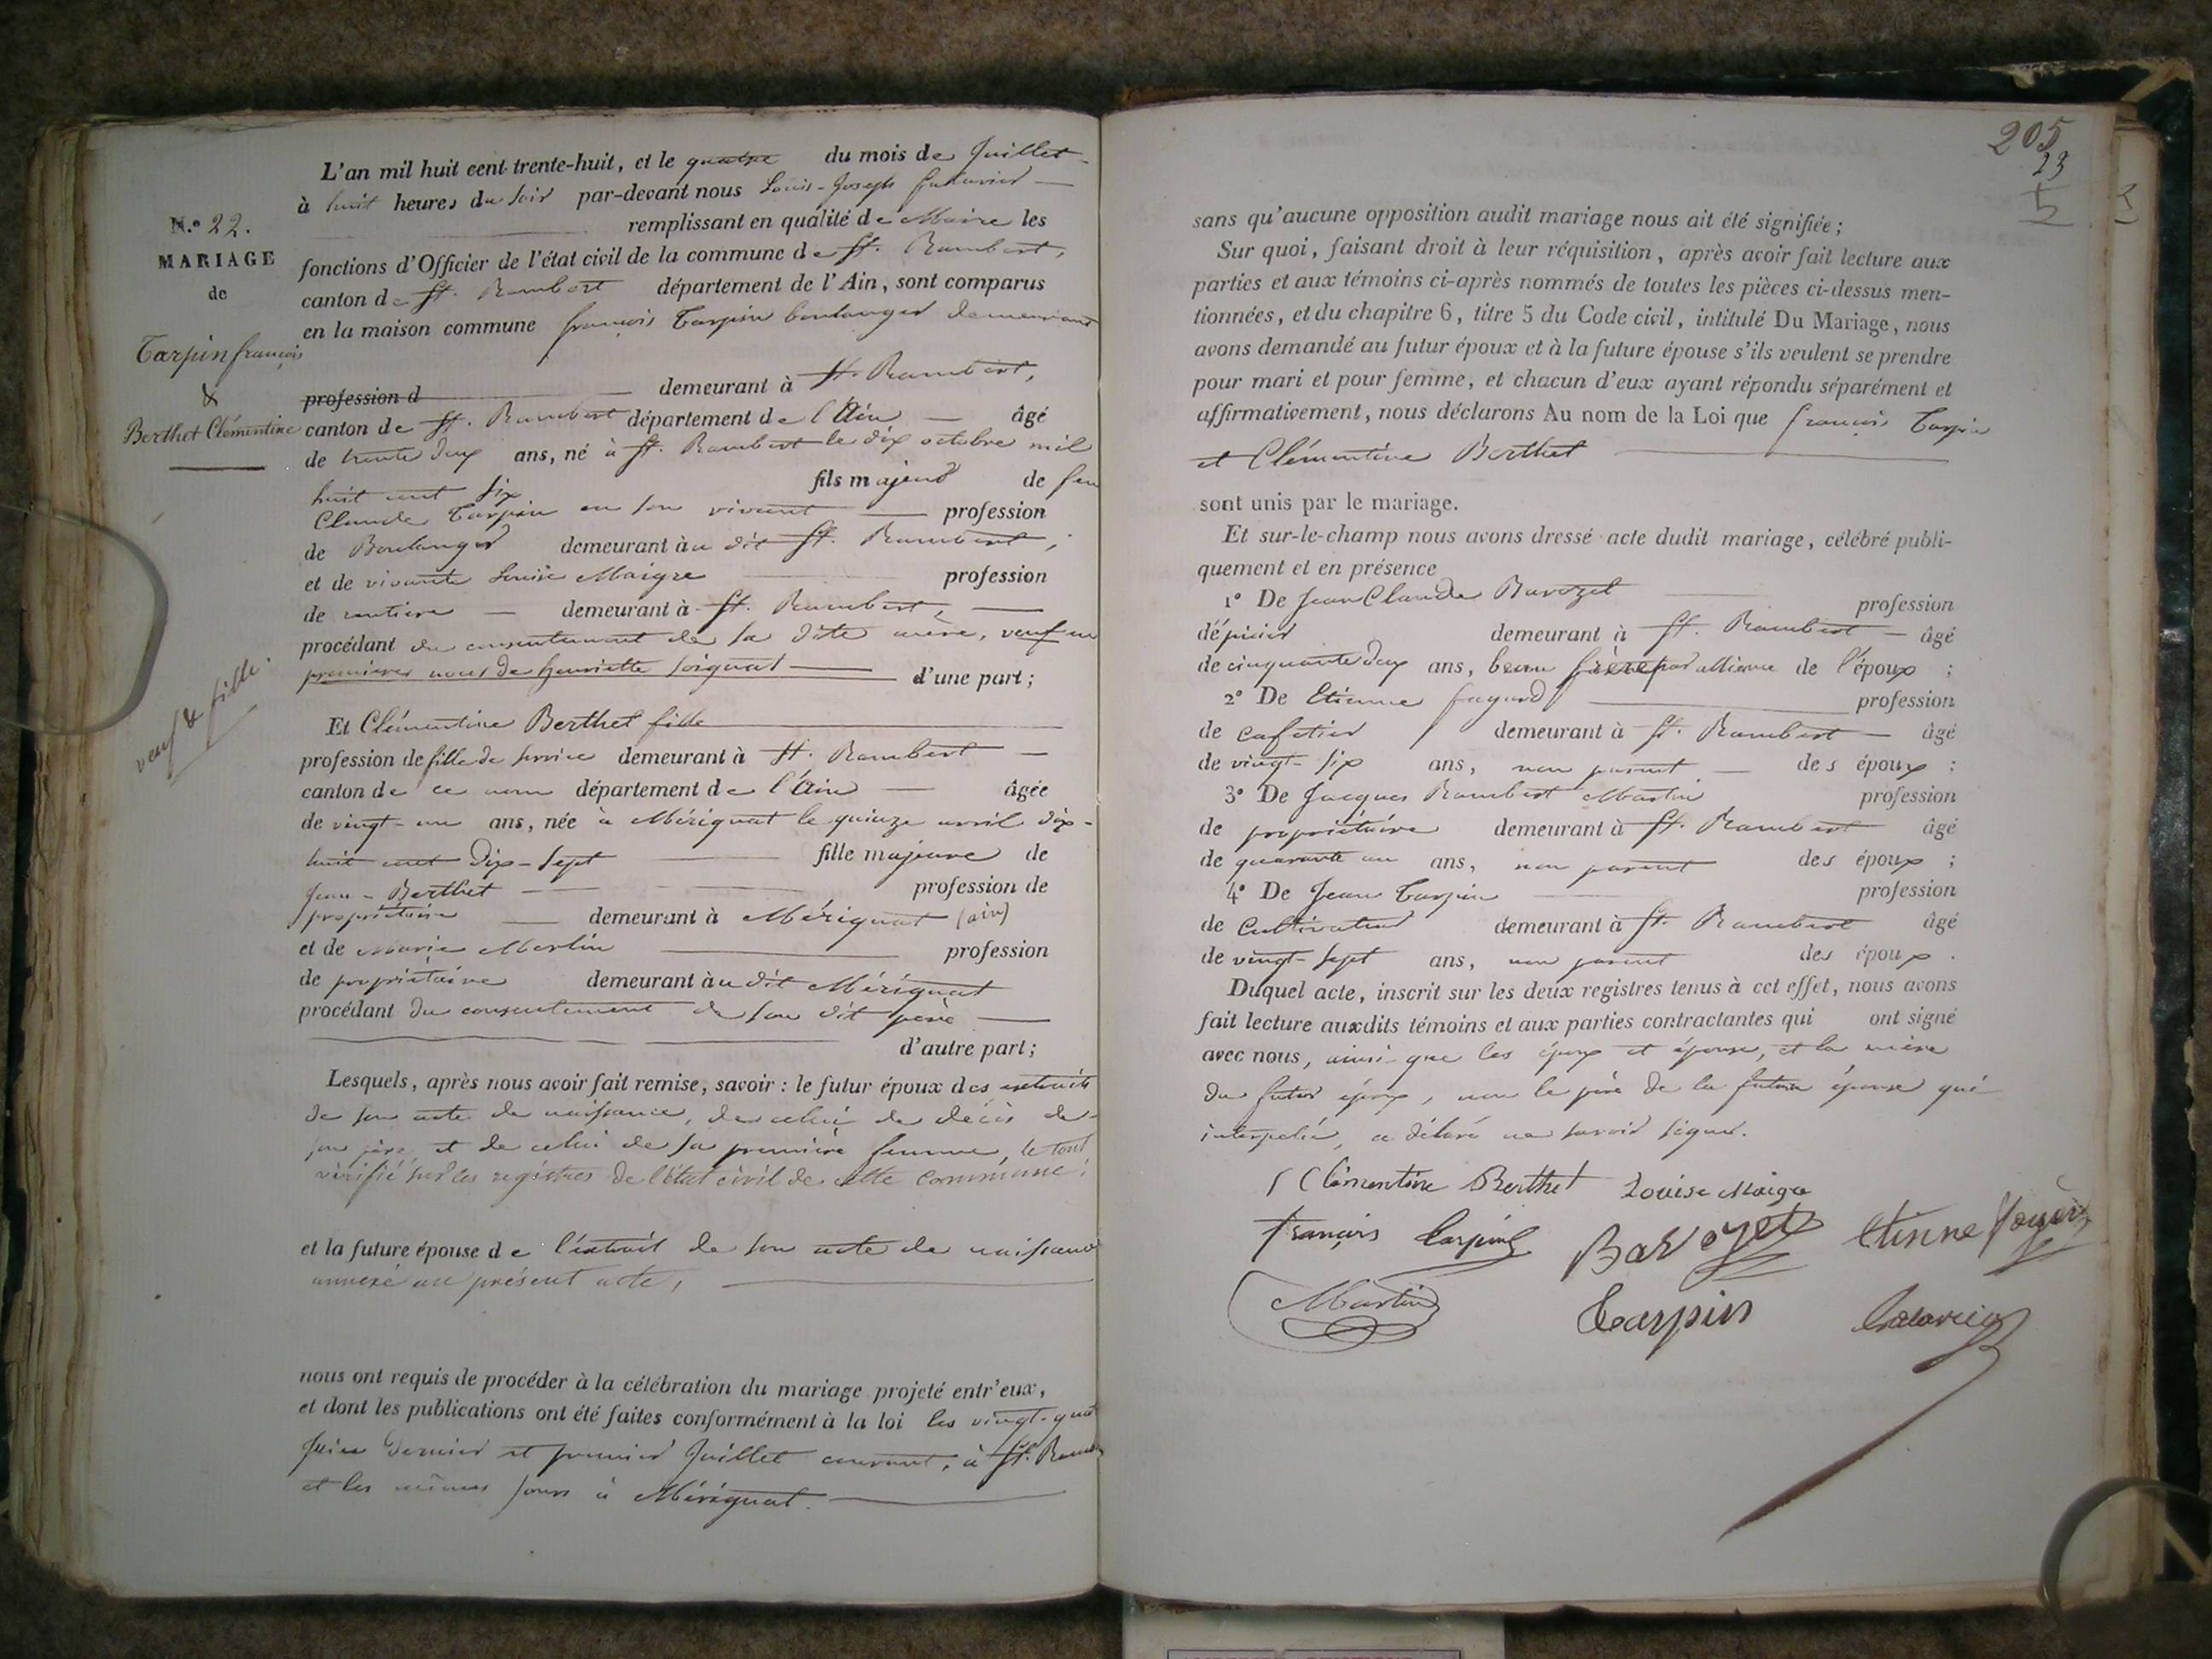 N.º 22.
MARIAGE
de
Tarpin françois
&
Berthet Clémentine
veuf & fille.
L'an mil huit cent trente-huit, et le quatre du mois de Juillet
à huit heures du soir par-devant nous Louis-Joseph
remplissant en qualité de Maire les
fonctions d'Officier de l'état civil de la commune de St. Rambert,
canton de St. Rambert département de l'Ain, sont comparus
en la maison commune françois Tarpin boulanger demeurant
profession d demeurant à St. Rambert,
canton de St. Rambert département de l'Ain âgé
de trente deux ans, né à St. Rambert le dix octobre mil
huit cent six fils majeur de feu
Claude Tarpin en son vivant profession
de Boulanger demeurant au dit St. Rambert,
et de vivante Louise Maigre profession
de rentière demeurant à St. Rambert,
procédant du consentement de sa dite mère, veuf en
premières noces de henriette d'une part;
Et Clémentine Berthet fille
profession de fille de service demeurant à St. Rambert
canton de ce nom département de l'Ain âgée
de vingt-un ans, née à Mérignat le quinze avril dix-
huit cent dix-sept fille majeure de
Jean-Berthet profession de
propriétaire demeurant à Mérignat (ain)
et de Marie Merlin profession
de propriétaire demeurant au dit Mérignat
procédant du consentement de son dit père
d'autre part;
Lesquels, après nous avoir fait remise, savoir : le futur époux des extraits
de son acte de naissance, de celui de décès de
son père, et de celui de sa première femme, le tout
vérifié sur les registres de l'état civil de cette commune;
et la future épouse de l'extrait de son acte de naissance
annexé au présent acte,
nous ont requis de procéder à la célébration du mariage projeté entr'eux,
et dont les publications ont été faites conformément à la loi les vingt-quatre
Juin dernier et premier Juillet courant, à St. Rambert
et les mêmes jours à Mérignat.
205
23
5
sans qu'aucune opposition audit mariage nous ait été signifiée;
Sur quoi, faisant droit à leur réquisition, après avoir fait lecture aux
parties et aux témoins ci-après nommés de toutes les pièces ci-dessus men-
tionnées, et du chapitre 6, titre 5 du Code civil, intitulé Du Mariage, nous
avons demandé au futur époux et à la future épouse s'ils veulent se prendre
pour mari et pour femme, et chacun d'eux ayant répondu séparément et
affirmativement, nous déclarons Au nom de la Loi que françois Tarpin
et Clémentine Berthet
sont unis par le mariage.
Et sur-le-champ nous avons dressé acte dudit mariage, célébré publi-
quement et en présence
1º De Jean Claude Barozet profession
d'épicier demeurant à St. Rambert âgé
de cinquante deux ans, beau frère par alliance de l'époux ;
2º De Etienne profession
de cafetier demeurant à St. Rambert âgé
de vingt-six ans, non parent des époux ;
3º De Jacques Rambert Martin profession
de propriétaire demeurant à St. Rambert âgé
de quarante un ans, non parent des époux ;
4º De Jean Tarpin profession
de Cultivateur demeurant à St. Rambert âgé
de vingt-sept ans, non parent des époux.
Duquel acte, inscrit sur les deux registres tenus à cet effet, nous avons
fait lecture auxdits témoins et aux parties contractantes qui ont signé
avec nous, ainsi que les époux et épouse, et la mère
du futur époux, non le père de la future épouse qui
interpelé, a déclaré ne savoir signer.
Clémentine Berthet Louise Maigre
françois Tarpin Barozet Etienne
Martin Tarpin